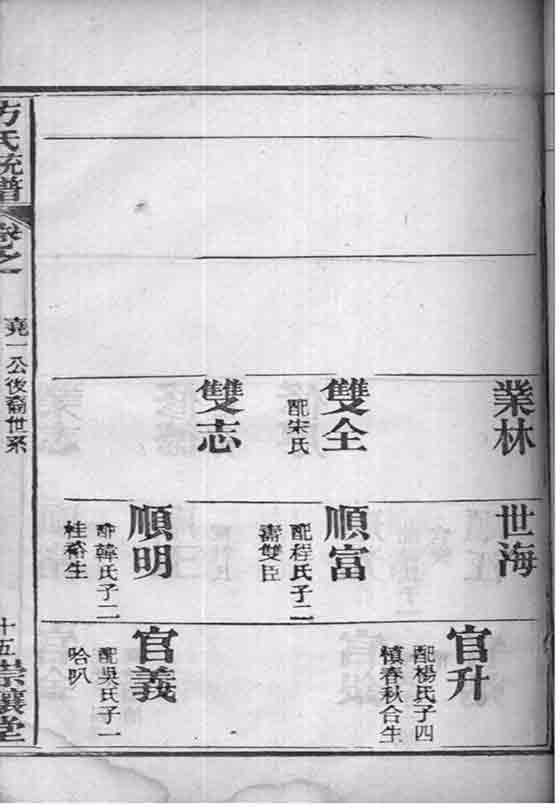 業林
雙全
配宋氏
雙志
世海
順富
配程氏子二
壽雙臣
順明
配韓氏子二
桂裕生
官升
配楊氏子四
慎春秋合生
官義
配吳氏子一
哈叭
方氏統譜
卷之一
堯一公後裔世系
十五
崇讓堂